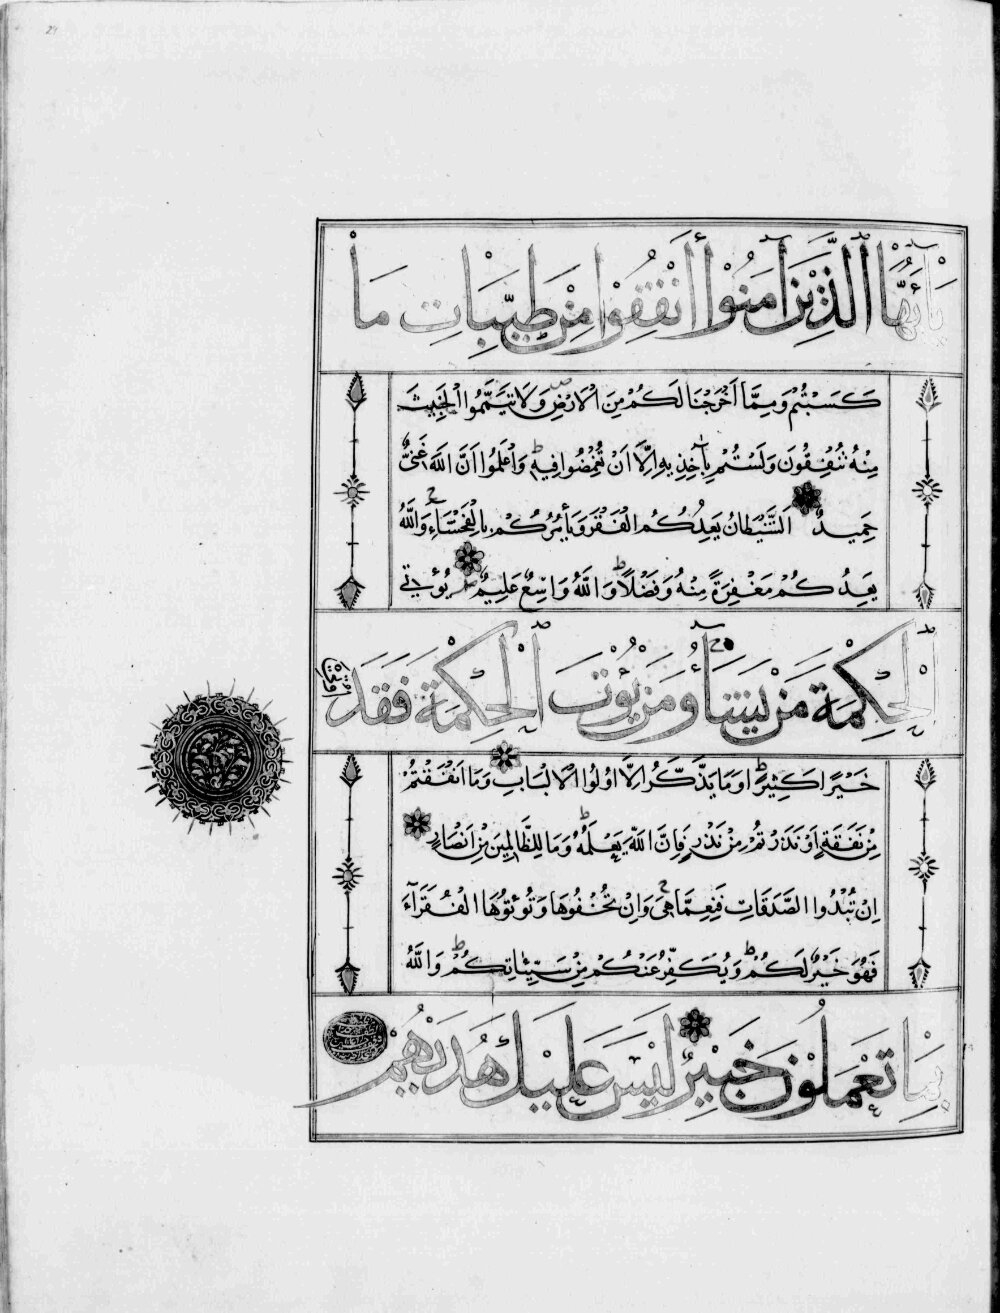 يَا أَيُّهَا الَّذِينَ آمَنُوا أَنْفِقُوا مِنْ طَيِّبَاتِ مَا
كَسَبْتُمْ وَمِمَّا اَخْرَجْنَا لَكُمْ مِنَ الْاَرْضِ وَلَا تَيَمَّمُوا الْخَبِيثَ
مِنْهُ تُنْفِقُونَ وَلَسْتُمْ بِآخِذِيهِ اِلَّا اَنْ تُغْمِضُوا فِيهِ وَاعْلَمُوا اَنَّ اللَّهَ غَنِيٌّ
حَمِيدٌ اَلشَّيْطَانُ يَعِدُكُمُ الْفَقْرَ وَيَأْمُرُكُمْ بِالْفَحْشَاءِ وَاللَّهُ
يَعِدُكُمْ مَغْفِرَةً مِنْهُ وَفَضْلًا وَاللَّهُ وَاسِعٌ عَلِيمٌ يُؤْتِي
الْحِكْمَةَ مَنْ يَشَاءُ وَمَنْ يُؤْتَ الْحِكْمَةَ فَقَدْ
خَيْرًا كَثِيرًا وَمَا يَذَّكَّرُ اِلَّا اُولُوا الْاَلْبَابِ وَمَا اَنْفَقْتُمْ
مِنْ نَفَقَةٍ اَوْ نَذَرْتُمْ مِنْ نَذْرٍ فَاِنَّ اللَّهَ يَعْلَمُهُ وَمَا لِلظَّالِمِينَ مِنْ اَنْصَارٍ
اِنْ تُبْدُوا الصَّدَقَاتِ فَنِعِمَّا هِيَ وَاِنْ تُخْفُوهَا وَتُؤْتُوهَا الْفُقَرَاءَ
فَهُوَ خَيْرٌ لَكُمْ وَيُكَفِّرُ عَنْكُمْ مِنْ سَيِّئَاتِكُمْ وَاللَّهُ
بِمَا تَعْمَلُونَ خَبِيرٌ لَيْسَ عَلَيْكَ هُدَيهُمْ